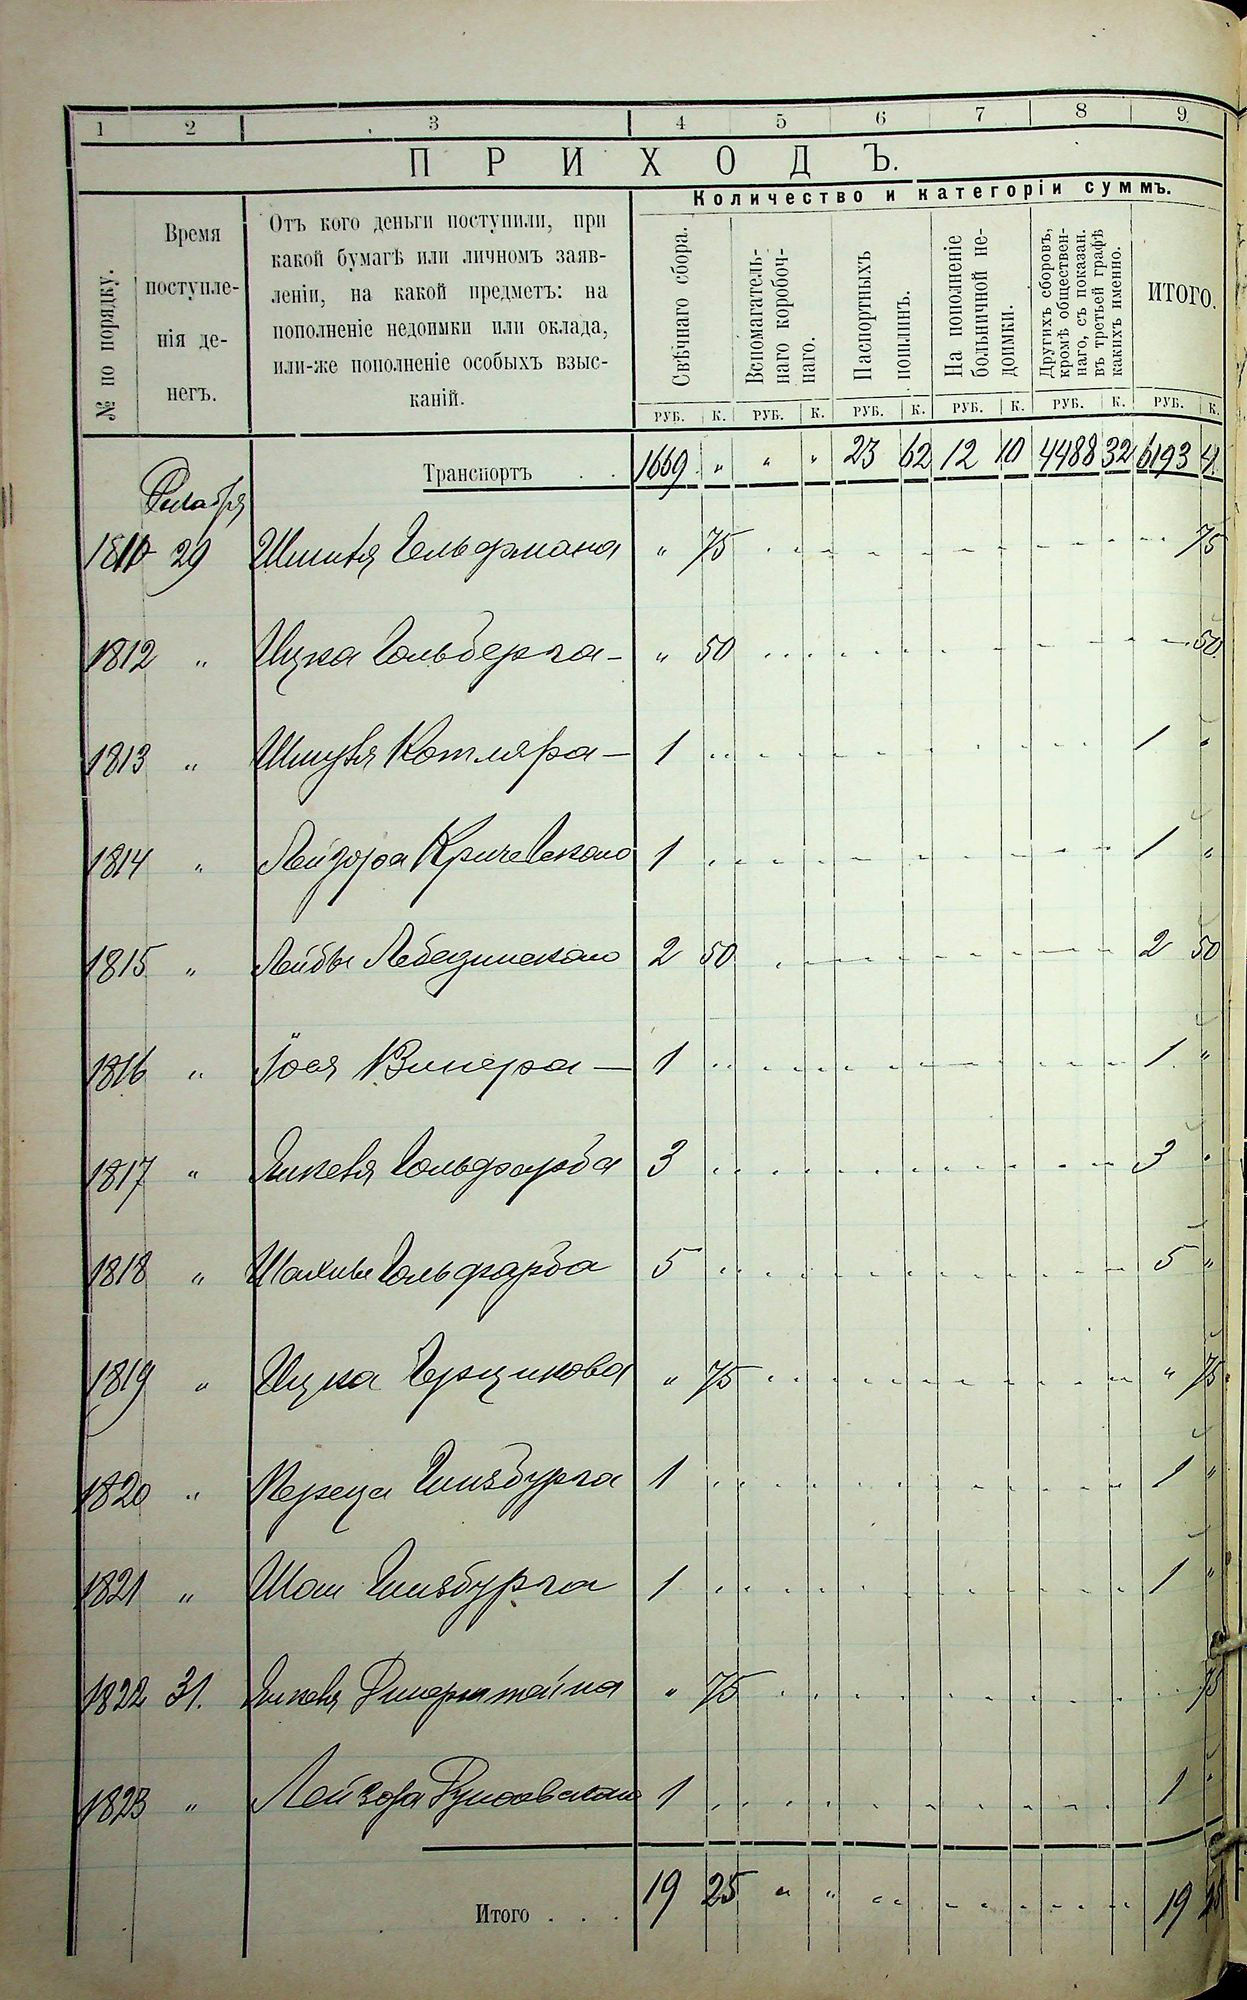 1 2 3 4 5 6 7 8 9
ПРИХОДЪ.
№ по порядку.
Время
поступле-
нія де-
негъ.
Отъ кого деньги поступили, при
какой бумагѣ или личномъ заяв-
леніи, на какой предметъ: на
пополненіе недоимки или оклада,
или-же пополненіе особыхъ взыс-
каній.
Количество и категоріи суммъ.
Свѣчнаго сбора.
Вспомагатель-
наго коробоч-
наго.
Паспортныхъ
пошлинъ.
На пополненіе
больничной не-
доимки.
Другихъ сборовъ,
кромѣ обществен-
наго, съ показан.
въ третьей графѣ
какихъ именно.
ИТОГО.
РУБ. К. РУБ. К. РУБ. К. РУБ. К. РУБ. К. РУБ. К.
Транспортъ . . 1669 „ „ „ 23 62 12 10 4488 32 6193 4
Декабря
29 Гельфмана „ 75 75
1812 „ Ицка Гольберга „ 50 50
1813 „ Шмуля Котляра 1 1 „
1814 „ Кричевскаго 1 1 „
1815 „ Лейбы Лебединскаго 2 50 2 50
1816 „ Іося Винера 1 1 „
1817 „ Янкеля Гольдфарба 3 3 „
1818 „ Гольдфарба 5 5 „
1819 „ Ицка Герцикова „ 75 „ 75
1820 „ Переца Гинзбурга 1 1 „
1821 „ Гинзбурга 1 1 „
1822 31. Янкеля „ 75 75
1823 „ Лейзора 1 1 „
Итого . . . 19 25 „ „ 19 25